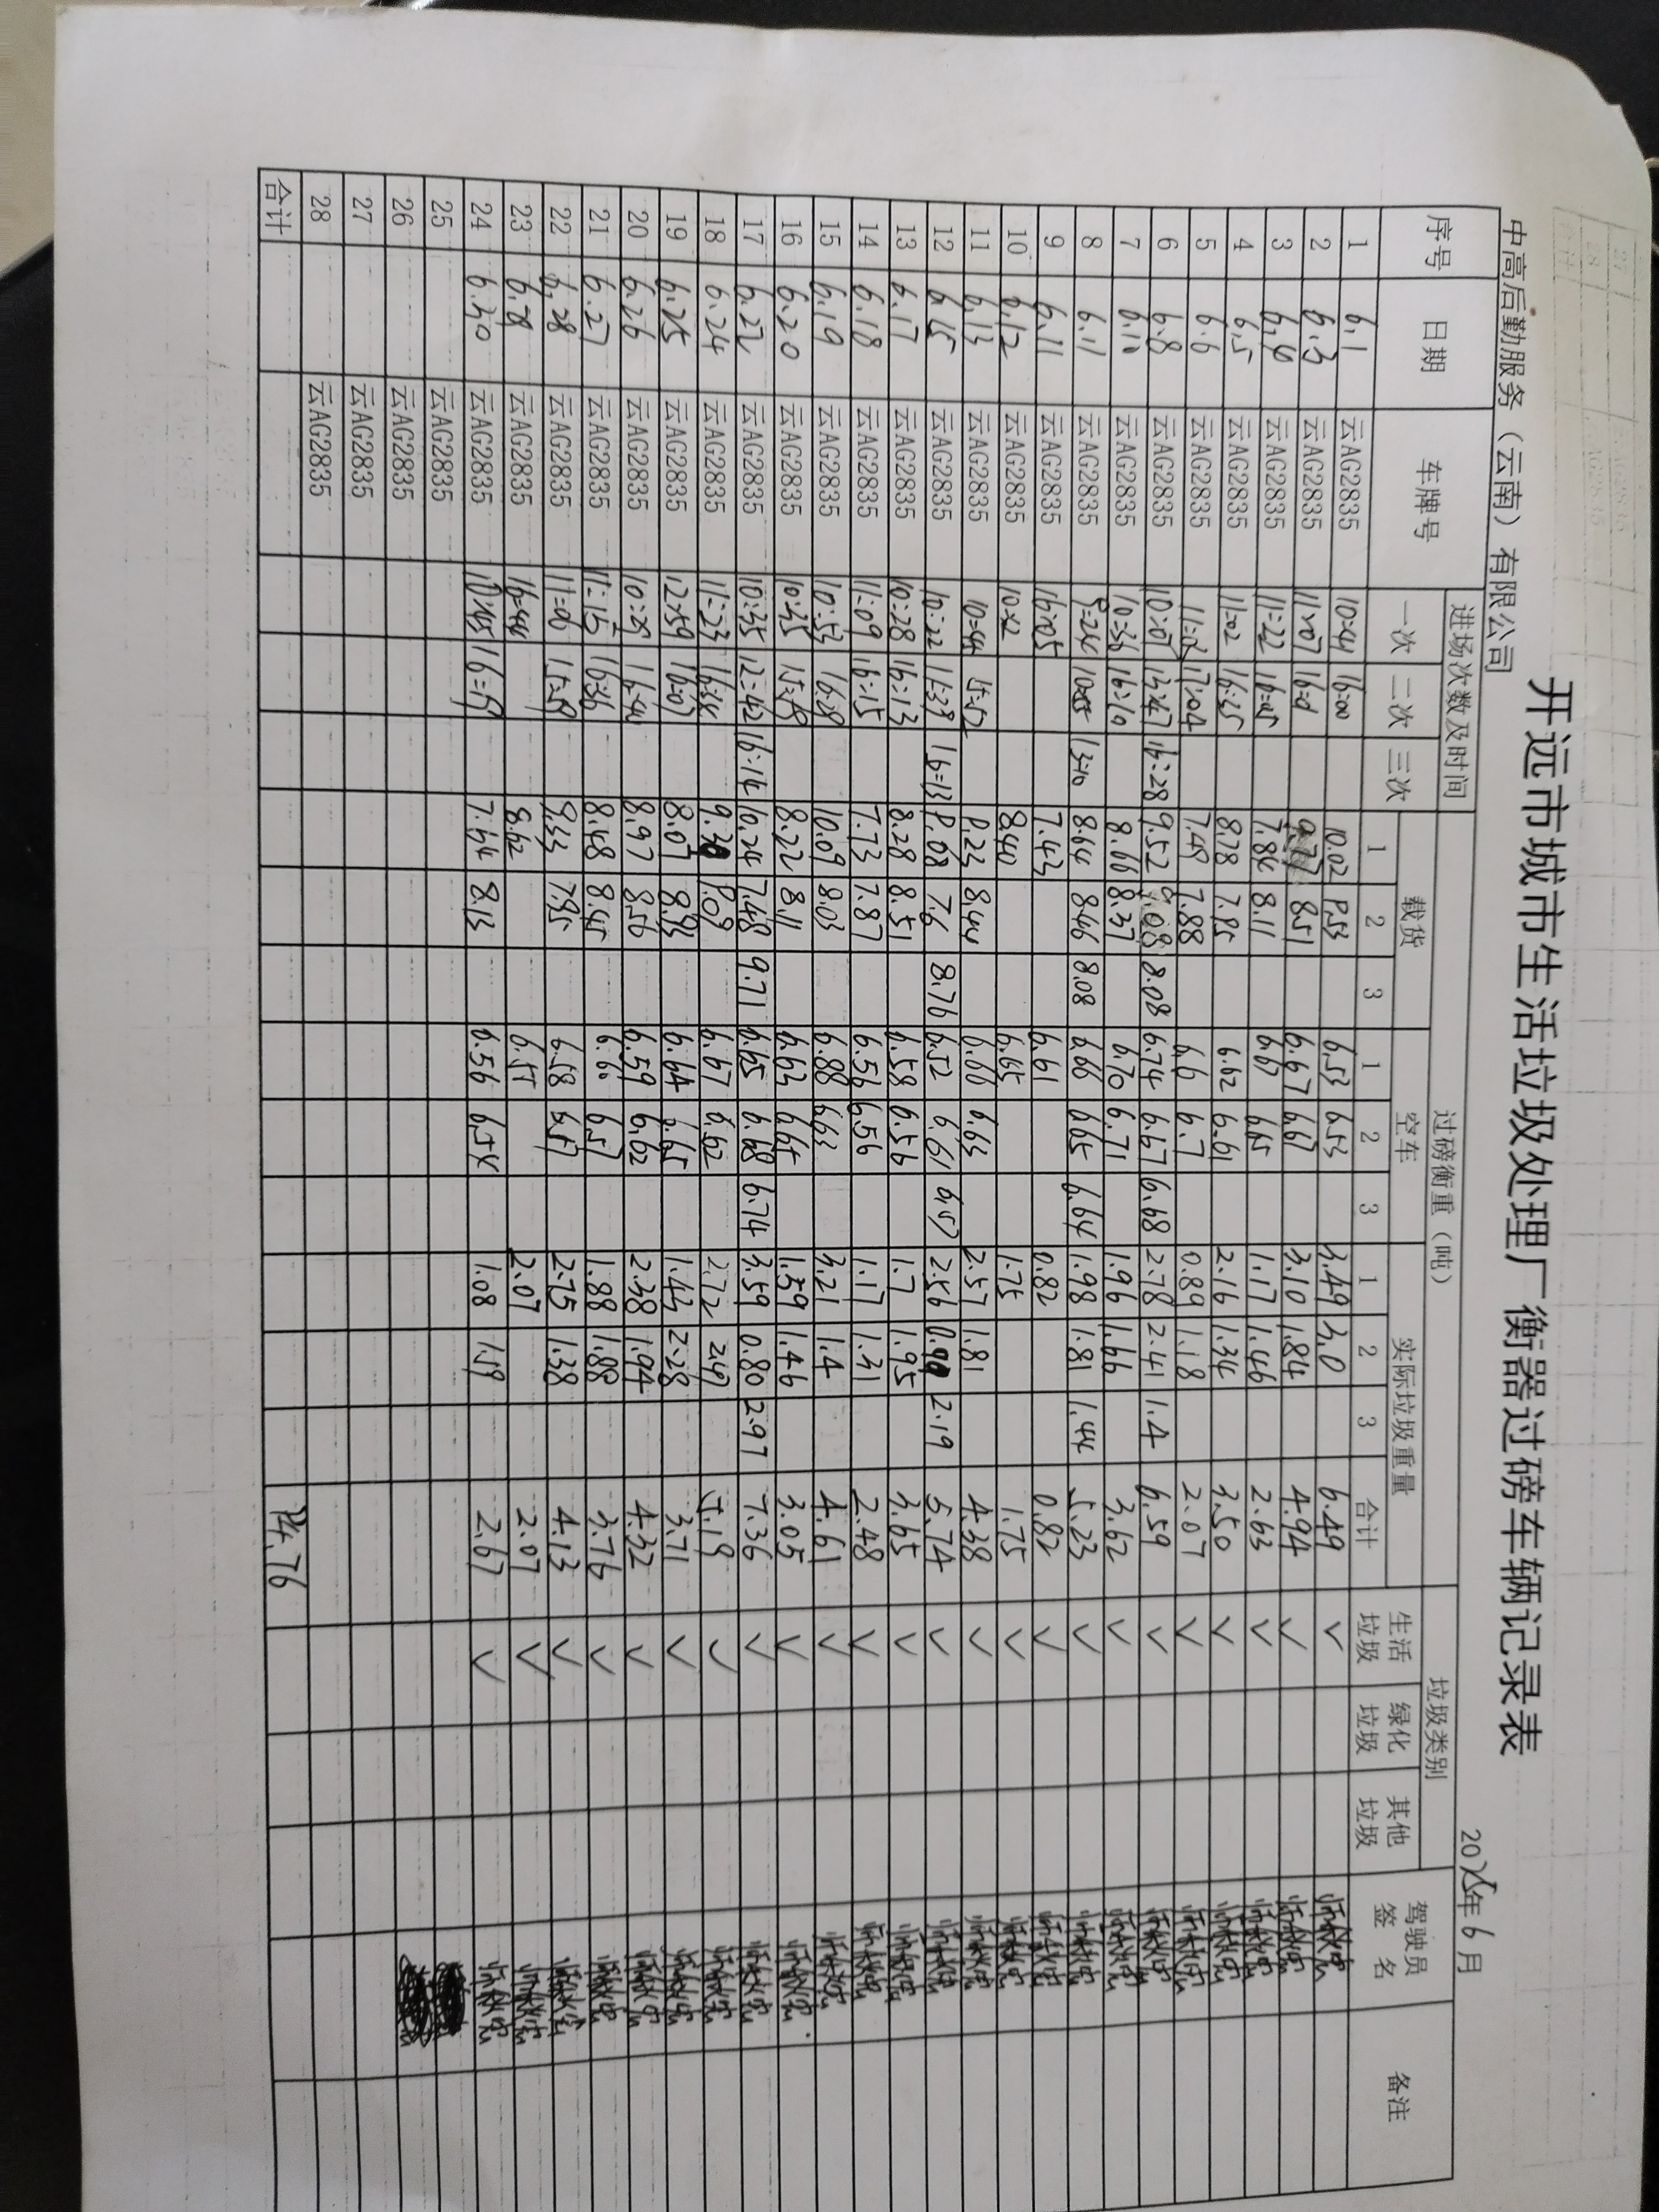 开远市城市生活垃圾处理厂衡器过磅车辆记录表
中高后勤服务（云南）有限公司 2025年6月
序号 日期 车牌号 进场次数及时间 过磅衡重（吨） 垃圾类别 驾驶员签名 备注
载货 空车 实际垃圾重量 生活垃圾 绿化垃圾 其他垃圾
一次 二次 三次 1 2 3 1 2 3 1 2 3 合计
1 6.1 云AG2835 10:44 16:00 10.02 9.53 6.53 6.53 3.49 3.0 6.49 √
2 6.3 云AG2835 11:07 9.77 8.51 6.67 6.67 3.10 1.84 4.94 √
3 6.4 云AG2835 11:22 16:05 7.84 8.11 6.67 6.65 1.17 1.46 2.63 √
4 6.5 云AG2835 11:02 16:25 8.78 7.95 6.62 6.61 2.16 1.34 3.50 √
5 6.6 云AG2835 17:04 7.49 7.88 6.6 6.7 0.89 1.18 2.07 √
6 6.8 云AG2835 10:01 13:47 16:28 9.52 9.08 8.08 6.74 6.67 6.68 2.78 2.41 1.4 6.59 √
7 6.10 云AG2835 10:36 16:10 8.66 8.37 6.70 6.71 1.96 1.66 3.62 √
8 6.11 云AG2835 9:24 10:55 13:10 8.64 8.46 8.08 6.66 6.65 6.64 1.98 1.81 1.44 5.23 √
9 6.11 云AG2835 16:05 7.43 6.61 0.82 0.82 √
10 6.12 云AG2835 10:22 8.40 6.65 1.75 1.75 √
11 6.13 云AG2835 10:44 15:52 9.23 8.44 6.66 6.63 2.57 1.81 4.38 √
12 6.15 云AG2835 10:22 11:39 16:13 9.08 7.6 8.76 6.52 6.61 6.57 2.56 0.99 2.19 5.74 √
13 6.17 云AG2835 10:28 16:13 8.28 8.51 6.58 6.56 1.7 1.95 3.65 √
14 6.18 云AG2835 11:09 16:15 7.73 7.87 6.56 6.56 1.17 1.31 2.48 √
15 6.19 云AG2835 10:53 16:28 10.09 8.03 6.88 6.63 3.21 1.4 4.61 √
16 6.20 云AG2835 10:35 15:58 8.22 8.11 6.63 6.65 1.59 1.46 3.05 √
17 6.22 云AG2835 10:35 12:42 16:14 10.24 7.48 9.71 6.65 6.68 6.74 3.59 0.80 2.97 7.36 √
18 6.24 云AG2835 11:23 16:38 9.39 9.09 6.67 6.62 2.72 2.47 5.19 √
19 6.25 云AG2835 12:59 16:07 8.07 8.93 6.64 6.65 1.43 2.28 3.71 √
20 6.26 云AG2835 10:29 16:44 8.97 8.56 6.59 6.62 2.38 1.94 4.32 √
21 6.27 云AG2835 11:15 16:36 8.48 8.45 6.60 6.57 1.88 1.88 3.76 √
22 6.28 云AG2835 11:00 15:59 9.33 7.95 6.58 6.57 2.75 1.38 4.13 √
23 6.28 云AG2835 16:44 8.62 6.55 2.07 2.07 √
24 6.30 云AG2835 10:45 16:19 7.64 8.13 6.56 6.54 1.08 1.59 2.67 √
25 云AG2835
26 云AG2835
27 云AG2835
28 云AG2835
合计 94.76